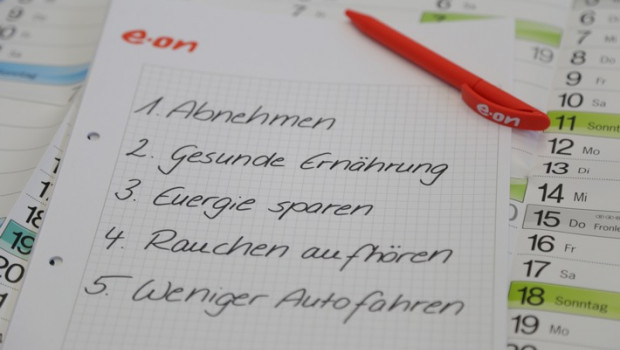 e·on
1. Abnehmen
2. Gesunde Ernährung
3. Energie sparen
4. Rauchen aufhören
5. Weniger Autofahren
e·on
7
19
18
19
20
6
7
8 Do
9 Fr
10 Sa
11 Sonnt
12 Mo
13 Di
14 Mi
15 Do Fronle
16 Fr
17 Sa
18 Sonntag
19 Mo